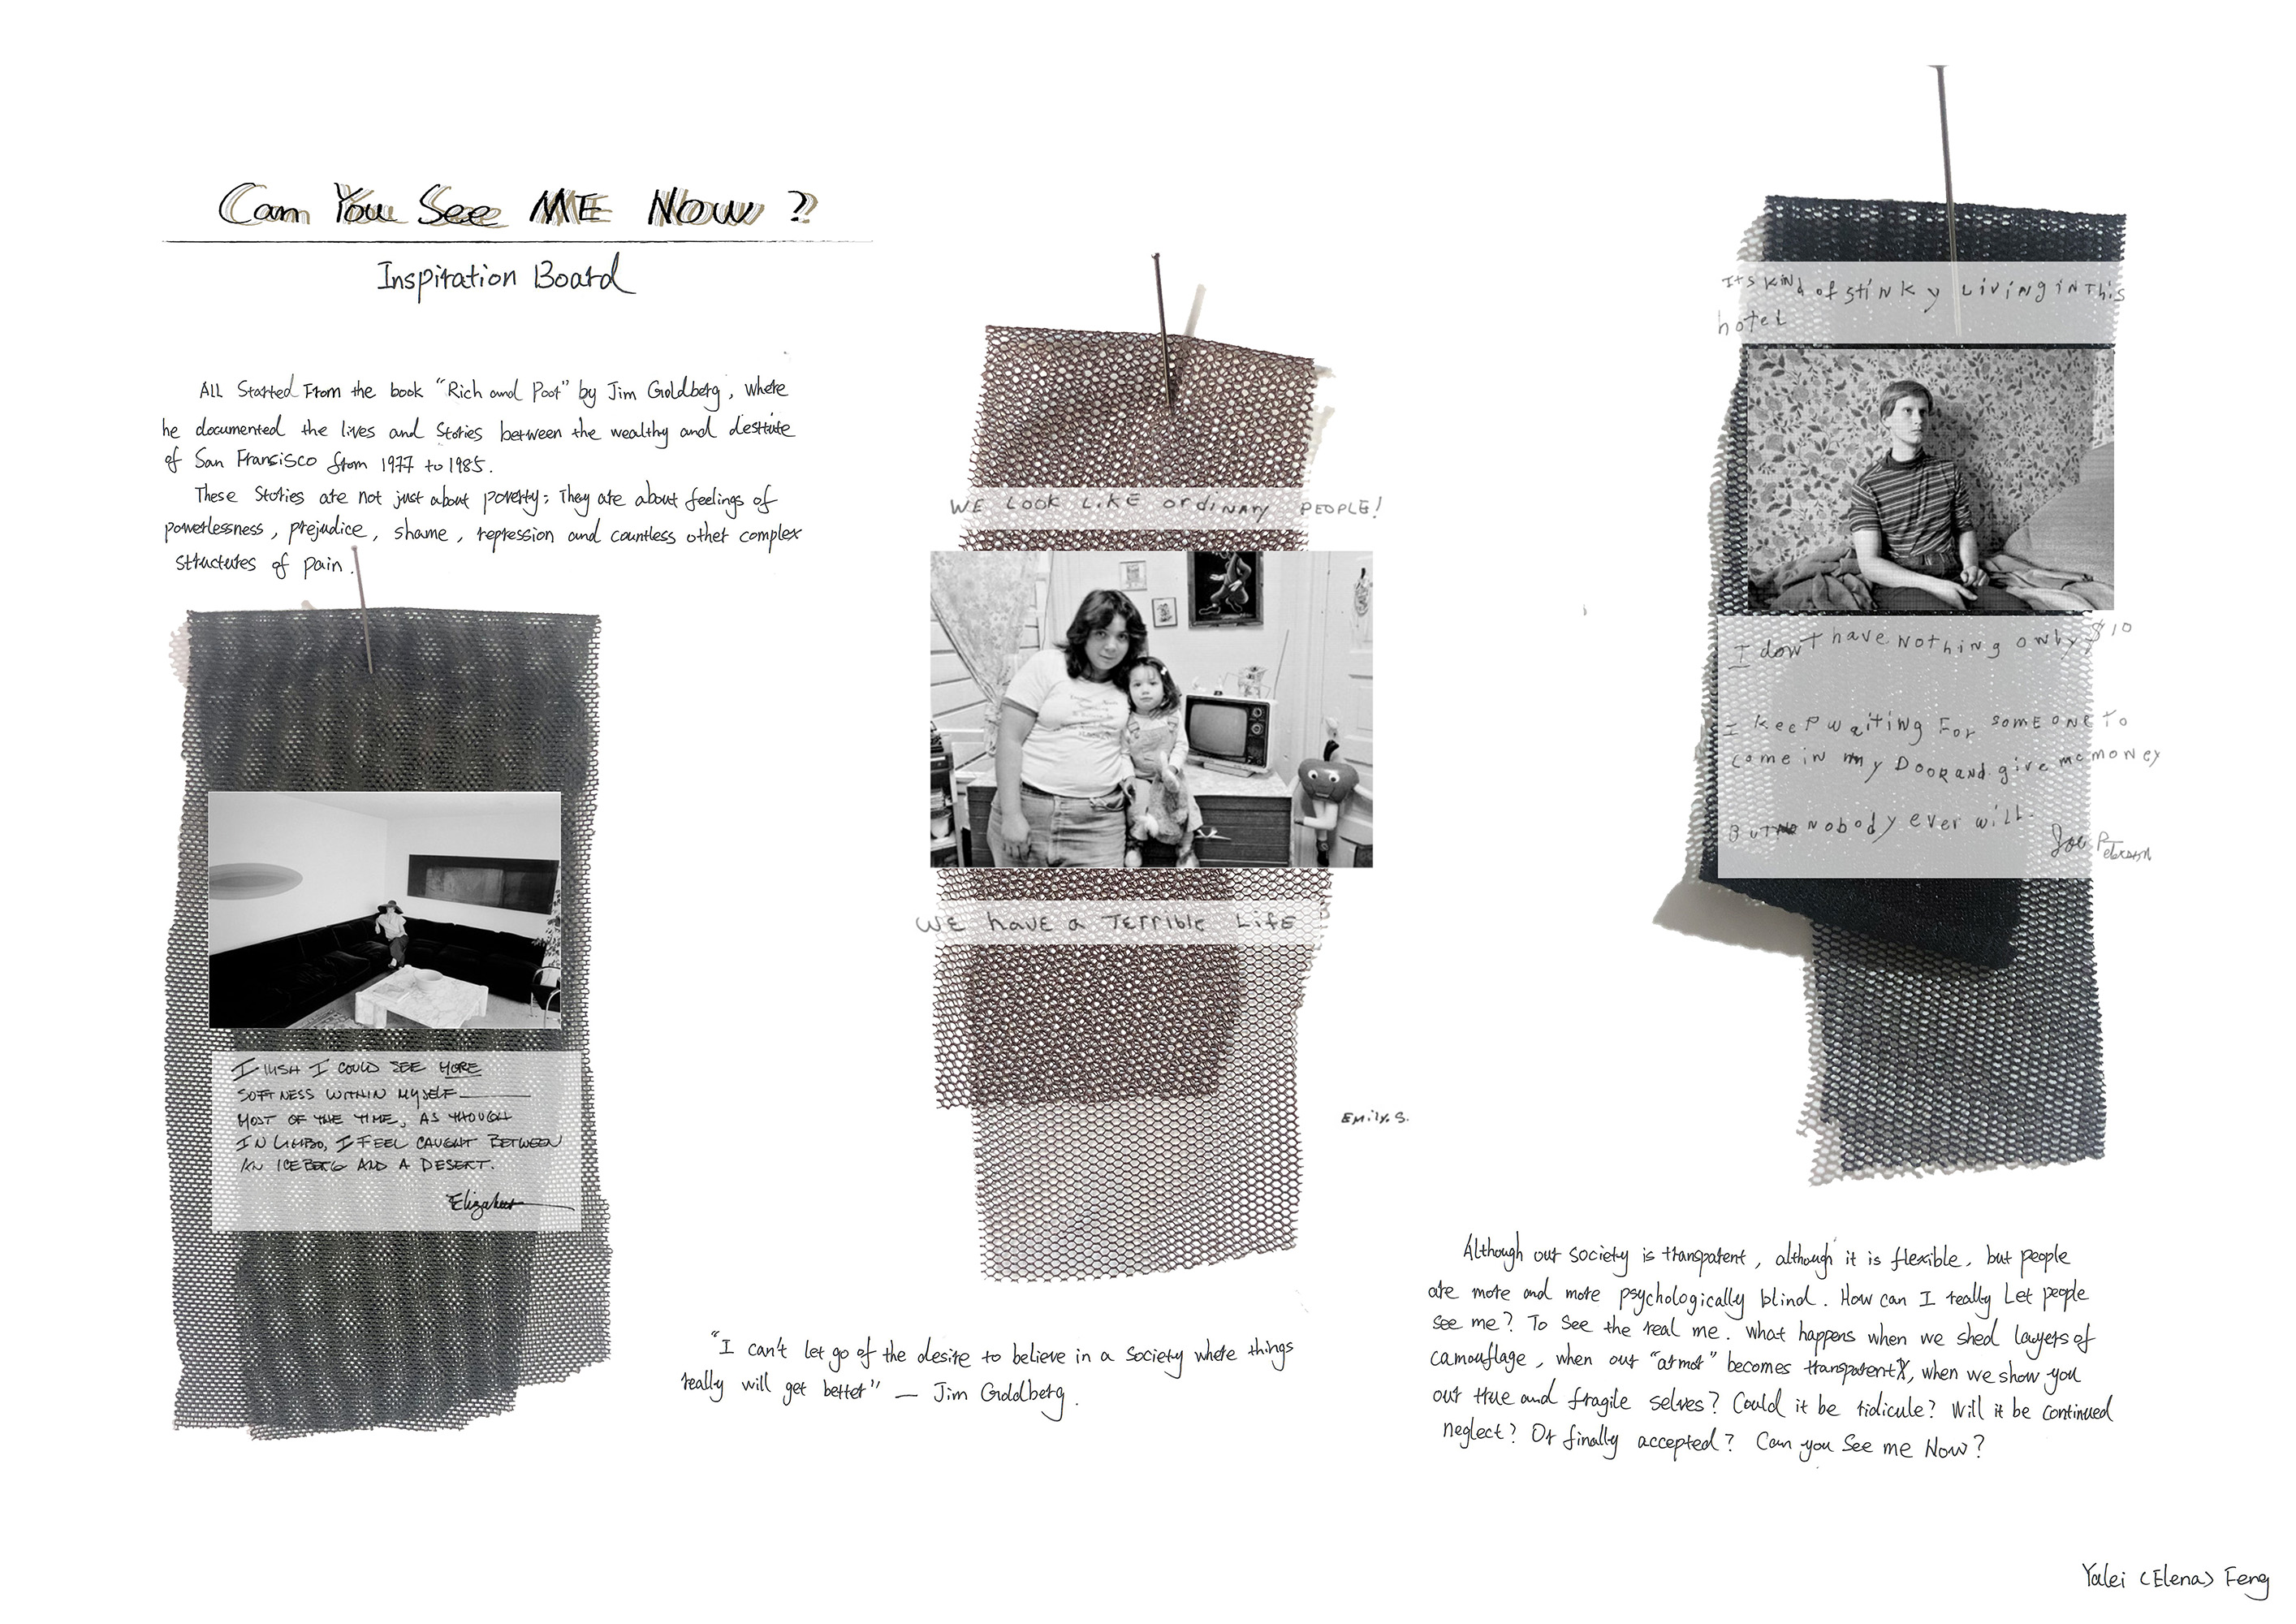 Can You See ME Now ?
Inspiration Board
ALL Started From the book "Rich and Poor" by Jim Goldberg, where
he documented the lives and stories between the wealthy and destitute
of San Fransisco from 1977 to 1985.
These stories are not just about poverty; They are about feelings of
powerlessness, prejudice, shame, repression and countless other complex
structures of pain.
I WISH I COULD SEE MORE
SOFTNESS WITHIN MYSELF
MOST OF THE TIME, AS THOUGH
IN LIMBO, I FEEL CAUGHT BETWEEN
AN ICEBERG AND A DESERT.
Elizabeth
WE LOOK LIKE ordiNARY PEOPLE!
WE have a TERRible Life
Emily. S.
"I can't let go of the desire to believe in a society where things
really will get better" — Jim Goldberg.
ITS KiNd of StiNKy LiviNg iN This
hotel
I don't have Nothing only $10
I keep waiting For someone To
come in my Door and give me money
BUT Nobody ever will.
Joe Peterson
Although our society is transparent, although it is flexible, but people
are more and more psychologically blind. How can I really Let people
see me? To see the real me. What happens when we shed layers of
camouflage, when our "armor" becomes transparent, when we show you
our true and fragile selves? Could it be ridicule? Will it be continued
neglect? Or finally accepted? Can you See me Now?
Yalei (Elena) Feng